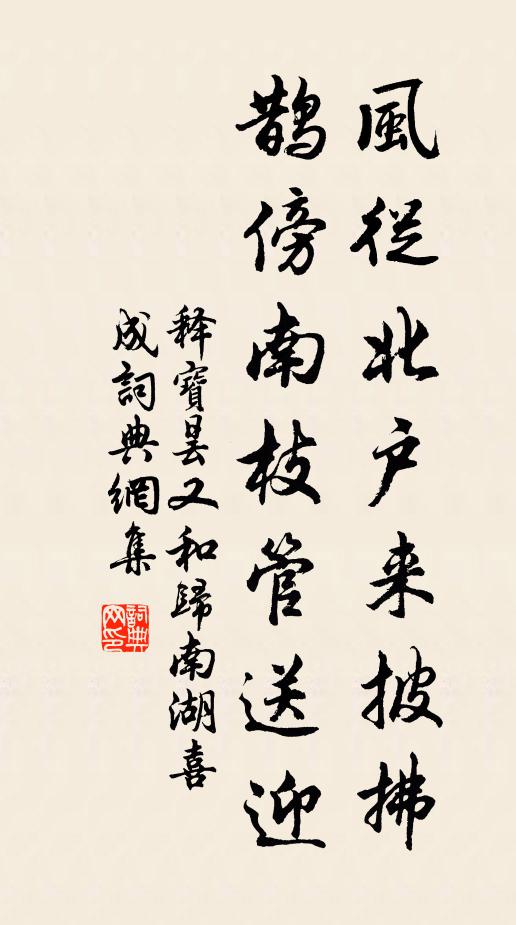 風從北户来披拂
鹊傍南枝管送迎
释寶曇又和歸南湖喜
成詞典網集
詞典网印